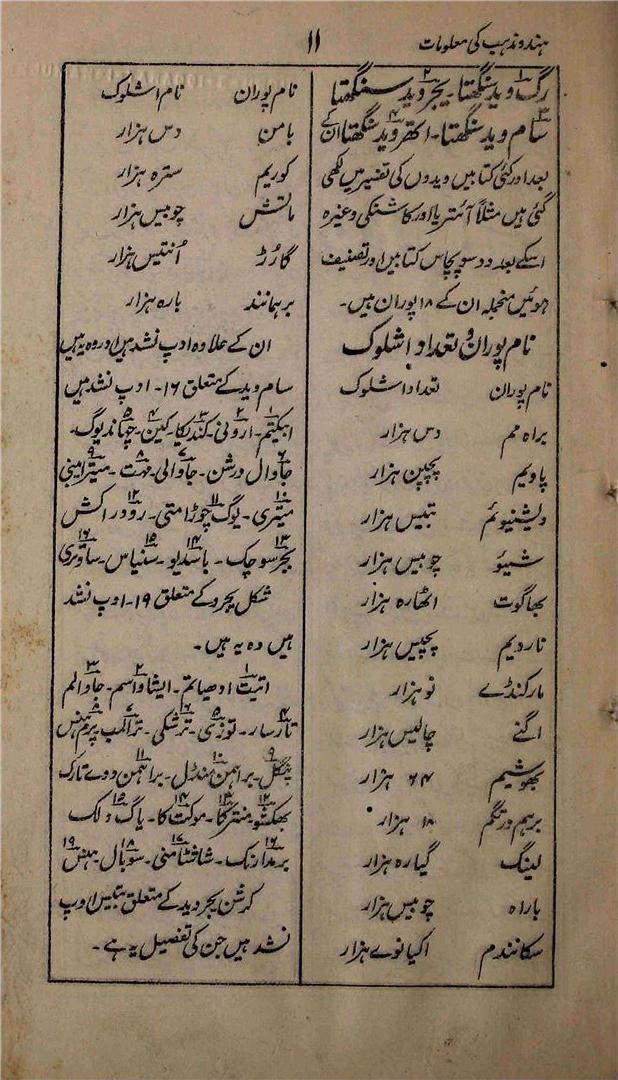 ہندو مذہب کی معلومات
۱۱
رگ وید سنگھتا۔ یجر وید سنگھتا
سام وید سنگھتا۔ اتھر وید سنگھتا ان کے
بعد اور کئی کتابیں ویدوں کی تفسیر میں لکھی
گئی ہیں مثلاً آئتریا اور کاشتکی وغیرہ
اسکے بعد دو سو پچاس کتابیں اور تصنیف
ہوئیں منجملہ ان کے ۱۸ پوران ہیں۔
نام پوران و تعداد اشلوک
نام پوران تعداد اشلوک
براہ مم دس ہزار
پاویم پچپن ہزار
ویشنیوئم تیئس ہزار
شیئو چوبیس ہزار
بھاگوت اٹھارہ ہزار
ناردیم پچیس ہزار
مارکنڈے نو ہزار
اگنے چالیس ہزار
بھوشیم ۶۴ ہزار
برہم ورتگم ۱۸ ہزار
لینگ گیارہ ہزار
باراہ چوبیس ہزار
سکانندم اکیانوے ہزار
نام پوران نام اشلوک
بامن دس ہزار
کوریم سترہ ہزار
ماتش چوبیس ہزار
گارُڑ اُنتیس ہزار
برہمانند بارہ ہزار
ان کے علاوہ اوپ نشد ہیں اور وہ یہ ہیں
سام وید کے متعلق ۱۶۔ اوپ نشد ہیں
ارونی۔ کندیکا۔ کین۔ چہاندیوگ۔
جاوال درشن۔ جاوالی۔ مہت۔ میترامینی
میتری۔ یوگ چوڑامتی۔ روور اکش
بجر سوچک۔ باسدیو۔ سنیاس۔ ساوتری
شکل یجرو کے متعلق ۱۹۔ اوپ نشد
ہیں وہ یہ ہیں۔
اتیت ادھیاتم۔ ایشاواسم۔ جاوالم
تارسار۔ ترشکی۔ پرم ہنس
پنگل۔ براہمن منڈل۔ براہمن دوے تارک
بھکشو۔ منترکا۔ موکت کا۔ یاگ ولک
برمدارنک۔ شاشتامنی۔ سوبال ہنس
کرشن یجر وید کے متعلق تیئیس اوپ
نشد ہیں جن کی تفصیل یہ ہے۔